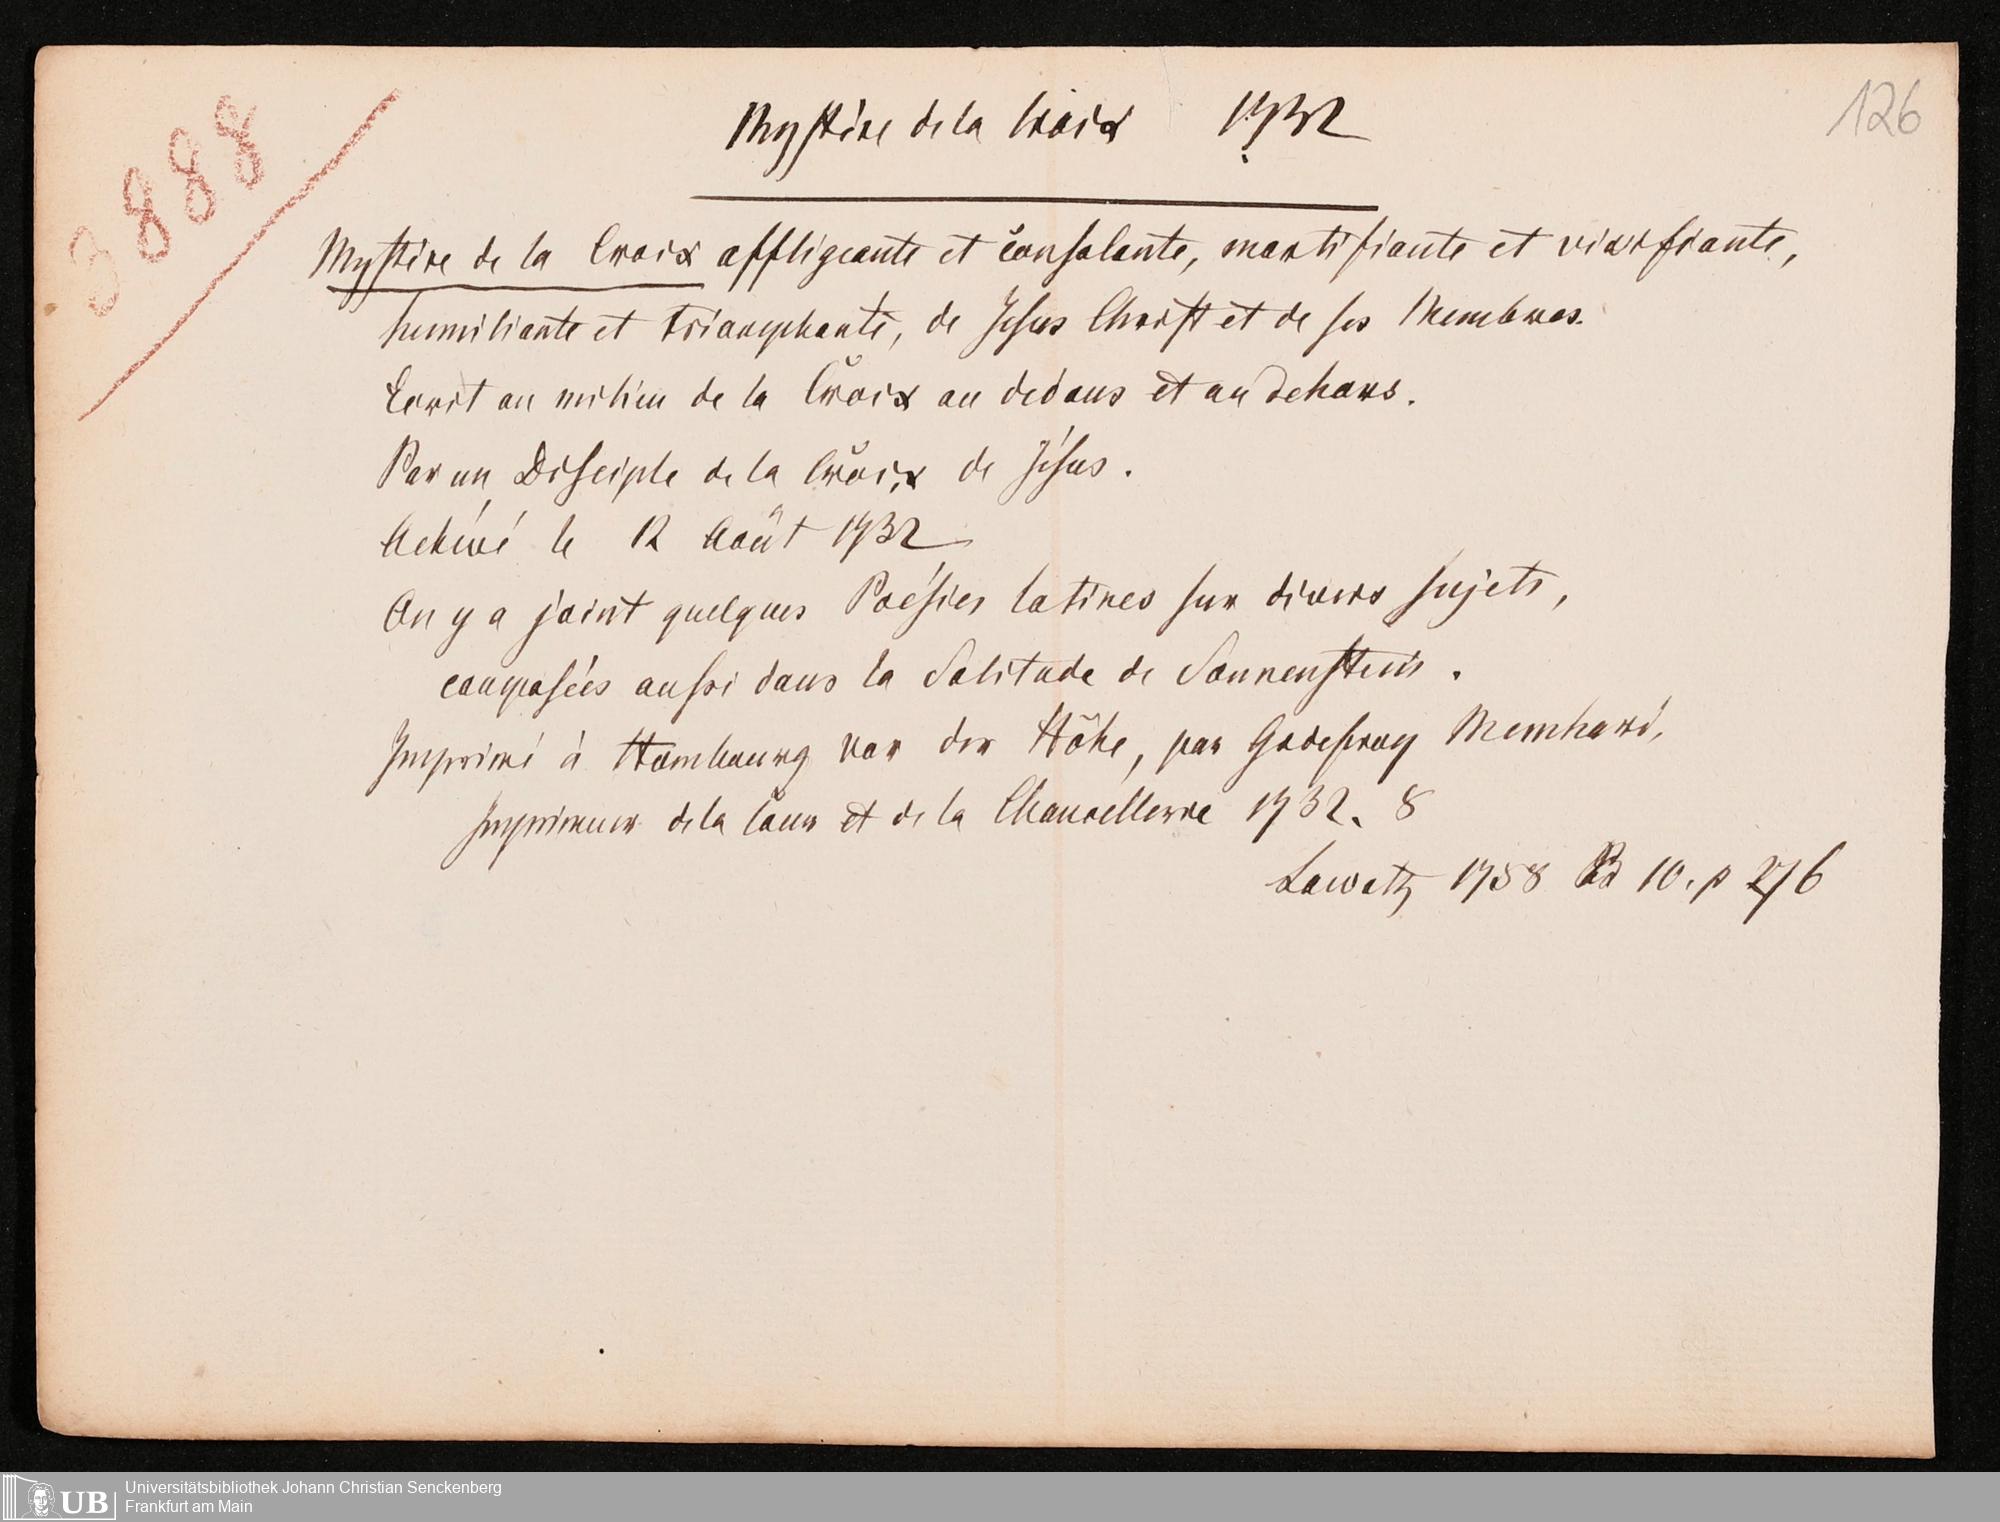 3888
126
Mystère de la Croix 1732
Mystère de la Croix affligeante et consolante, mortifiante et vivifiante,
humiliante et triomphante, de Jesus Christ et de ses Membres.
Ecrit au milieu de la Croix au dedans et au dehors.
Par un Disciple de la Croix de Jésus.
Achévé le 12 Août 1732
On y a joint quelques Poésies latines sur divers sujets,
composées aussi dans la Solitude de Sonnenstein.
Imprimé à Hombourg vor der Höhe, par Godefroy
Imprimeur de la Cour et de la Chancellerie 1732. 8
Lawätz 1758 Bd 10. p 276
UB
Universitätsbibliothek Johann Christian Senckenberg
Frankfurt am Main